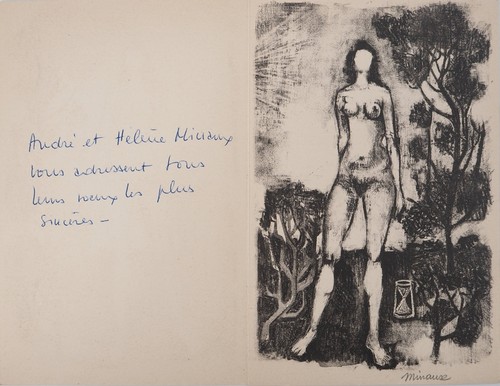 André et Helène Minaux
vous adressent tous
leurs voeux les plus
sincères –
minaux